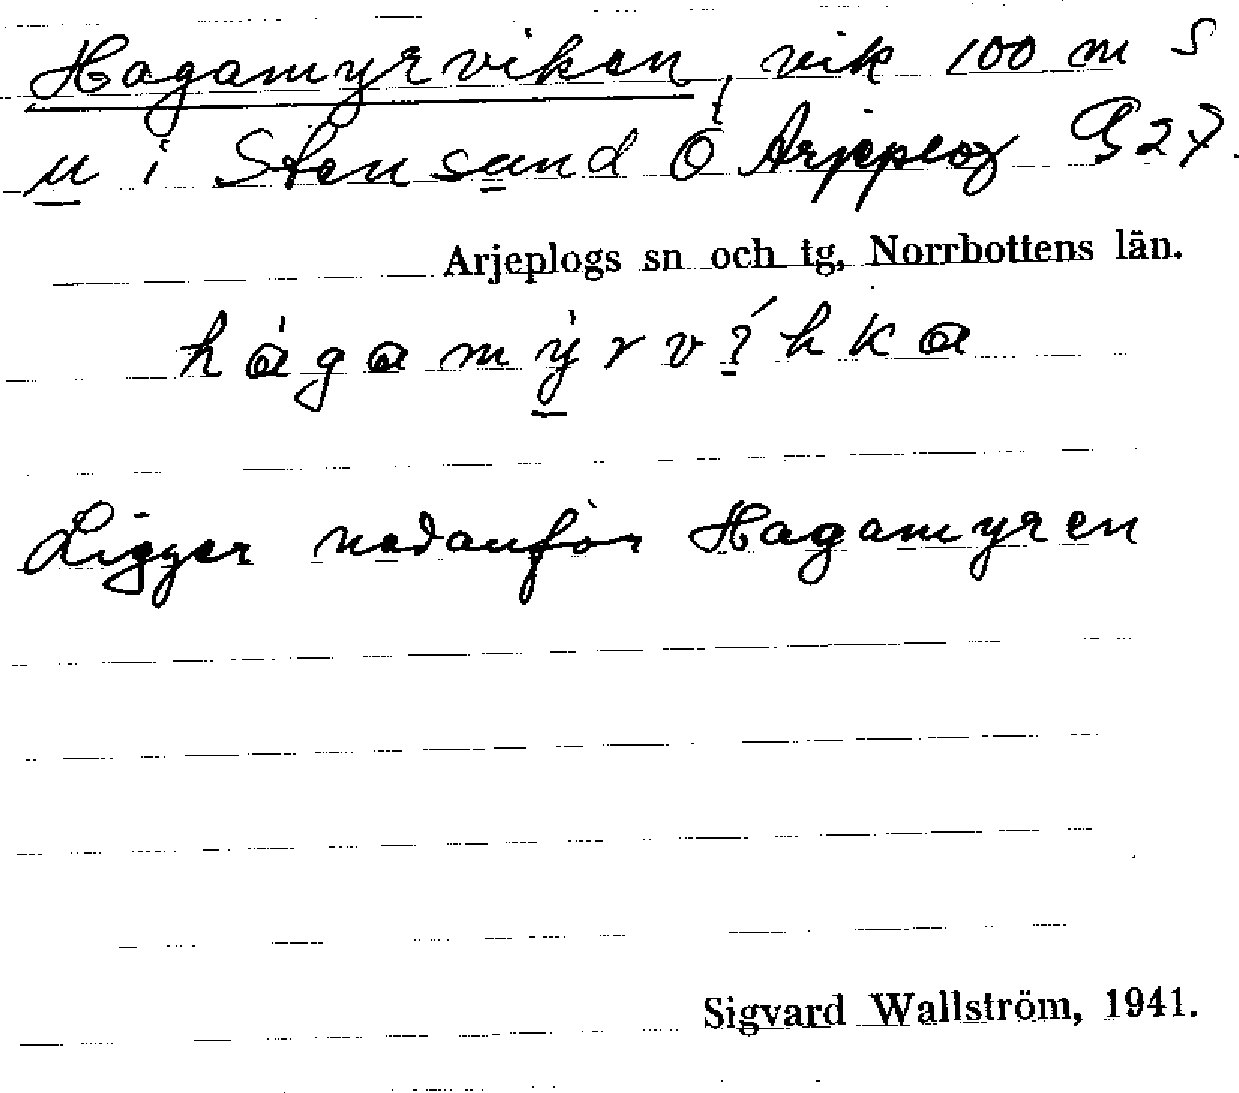 Hagamyrviken, vik 100 m S
u i Stensund Ö Arjeplog 927.
Arjeplogs sn och tg, Norrbottens län.
hagamyrvihka
Ligger nedanför Hagamyren
Sigvard Wallström, 1941.